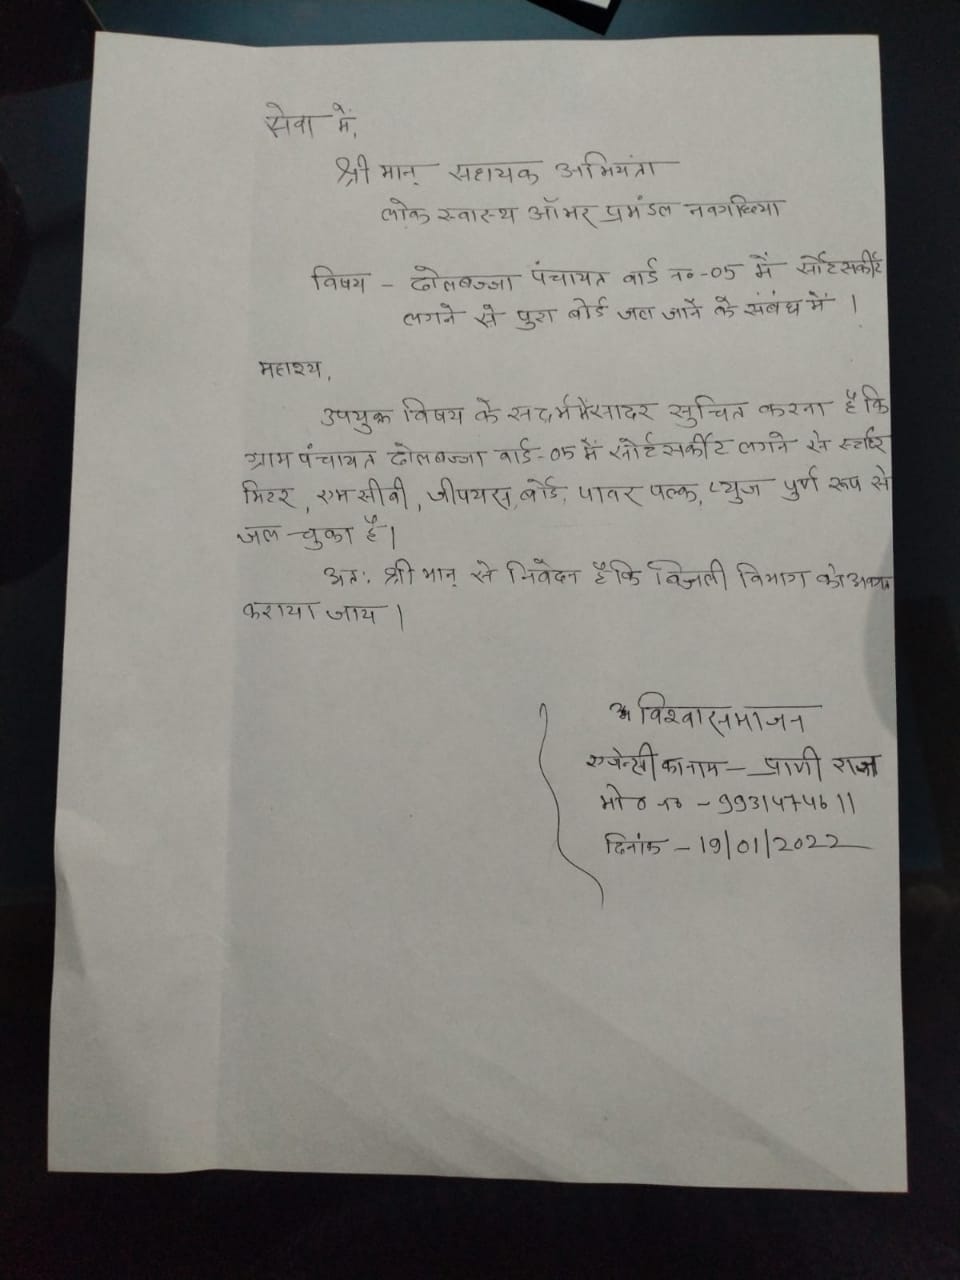 सेवा में,
श्री मान् सहायक अभियंता
लोक स्वास्थ्य ऑभर प्रमंडल नवगछिया
विषय - ढोलबज्जा पंचायत वार्ड न०-05 में सोर्ट सर्कीट
लगने से पुरा बोर्ड जल जाने के संबंध में ।
महाश्य,
उपयुक्त विषय के सदर्भ में सादर सुचित करना है कि
ग्राम पंचायत ढोलबज्जा वार्ड-05 में सोर्ट सर्कीट लगने से स्टार्टर
मिटर, एमसीबी, जीपयस, बोर्ड, पावर पल्क, प्युज पुर्ण रूप से
जल चुका है।
अतः श्री मान् से निवेदन है कि बिजली विभाग को अवगत
कराया जाय ।
विश्वासभाजन
एजेन्सी का नाम - प्राणी राज
मो० न० - 9931474611
दिनांक - 19/01/2022